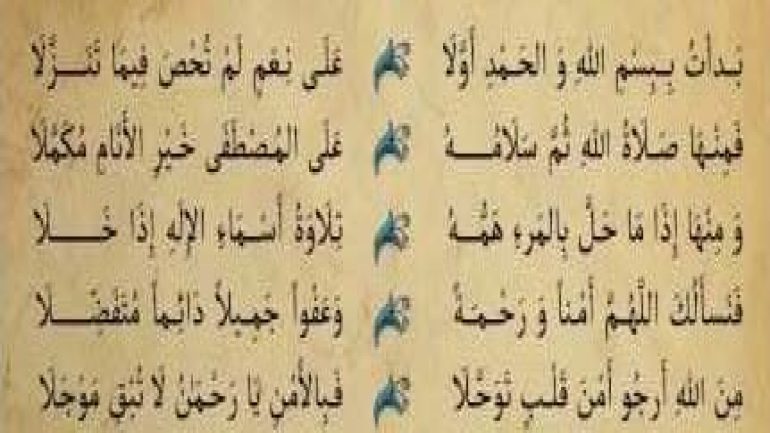 بَدَأتُ بِبِسْمِ اللهِ وَ الحَمْدِ أَوَّلَا عَلَى نِعَمٍ لَمْ تُحْصَ فِيمَا تَنَزَّلَا
فَمِنْهَا صَلَاةُ اللهِ ثُمَّ سَلَامُهُ عَلَى المُصْطَفَى خَيْرِ الأَنَامِ مُكَمَّلَا
وَ مِنْهَا إِذَا مَا حَلَّ بِالمَرءِ هَمُّهُ تِلَاوَةُ أَسْمَاءِ الإِلَهِ إِذَا خَلَا
فَنَسأَلُكَ اللَّهُمَّ أَمْناً وَ رَحْمَةً وَعَفْواً جَمِيلاً دَائِماً مُتَفَضِّلَا
مِنَ اللهِ أَرجُو أَمْنَ قَلْبٍ تَوَحَّلَا فَبِالأَمْنِ يَا رَحْمَانُ لَا تُبْقِ مَوْجَلَا